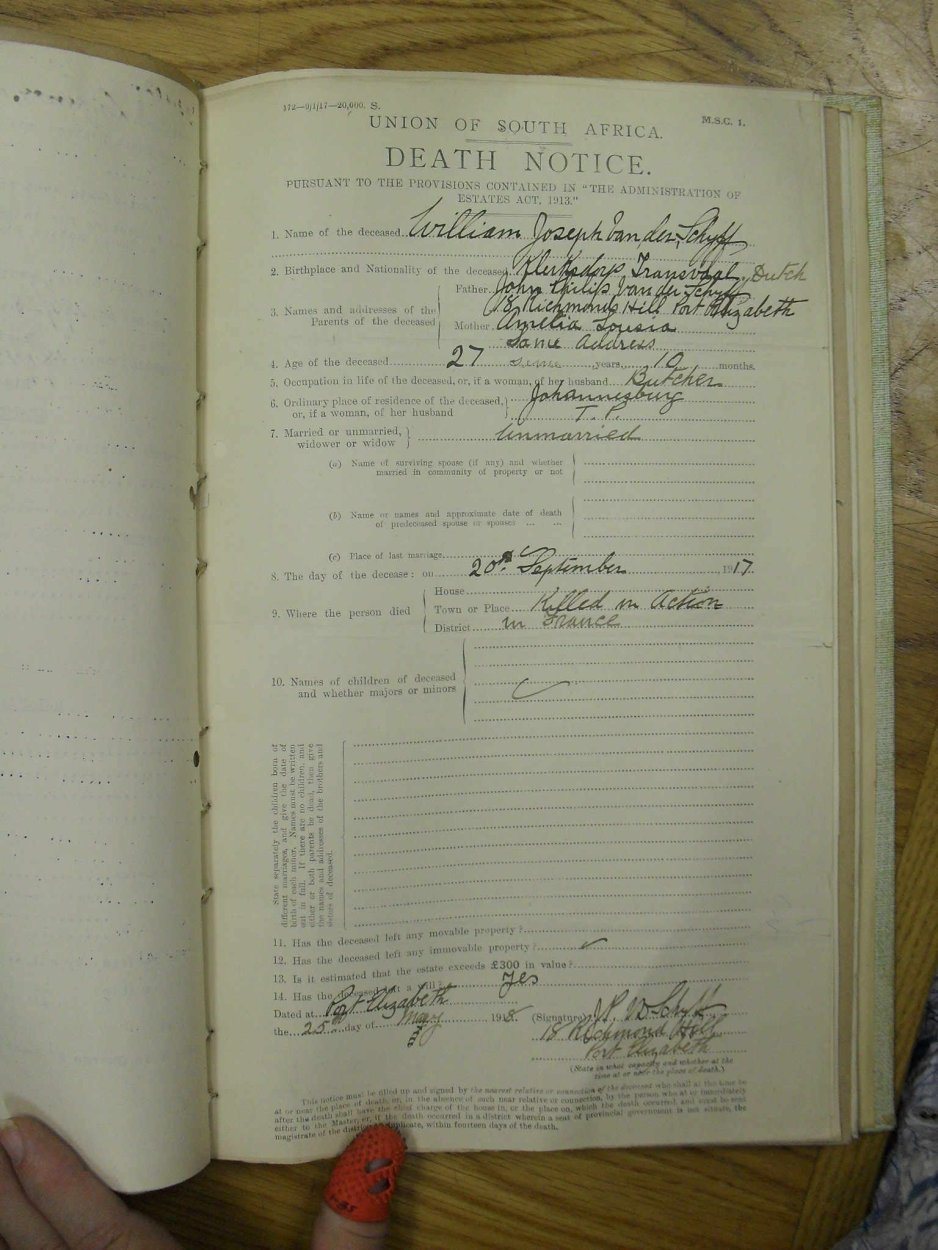 172—9/1/17—20,000. S.
M.S.C. 1.
UNION OF SOUTH AFRICA.
DEATH NOTICE.
PURSUANT TO THE PROVISIONS CONTAINED IN "THE ADMINISTRATION OF
ESTATES ACT, 1913."
1. Name of the deceased William Joseph Van der Schyff
2. Birthplace and Nationality of the deceased Klerksdorp Transvaal, Dutch
3. Names and addresses of the Parents of the deceased
Father John Philip Van der Schyff
18 Richmond Hill Port Elizabeth
Mother Amelia Lousia
Same Address
4. Age of the deceased 27 years 10 months.
5. Occupation in life of the deceased, or, if a woman, of her husband Butcher
6. Ordinary place of residence of the deceased, Johannesburg
or, if a woman, of her husband T. P.
7. Married or unmarried, widower or widow Unmarried
(a) Name of surviving spouse (if any) and whether
married in community of property or not
(b) Name or names and approximate date of death
of predeceased spouse or spouses ... ...
(c) Place of last marriage
8. The day of the decease: on 20th September 1917
9. Where the person died
House
Town or Place Killed in Action
District in France
10. Names of children of deceased
and whether majors or minors
State separately the children born of
different marriages, and give the date of
birth of each minor. Names must be written
out in full. If there are no children, and
either or both parents be dead, then give
the names and addresses of the brothers and
sisters of deceased.
11. Has the deceased left any movable property?
12. Has the deceased left any immovable property?
13. Is it estimated that the estate exceeds £300 in value?
14. Has the deceased left a will? Yes
Dated at Port Elizabeth
the 25th day of May 1918
(Signature)
18 Richmond Hill
Port Elizabeth
(State in what capacity and whether at the
time at or near the place of death.)
This notice must be filled up and signed by the nearest relative or connection of the deceased who shall at the time be
at or near the place of death, or, in the absence of such near relative or connection, by the person who at or immediately
after the death shall have the chief charge of the house in, or the place on, which the death occurred, and must be sent
either to the Master, or, if the death occurred in a district wherein a seat of provincial government is not situate, the
magistrate of the district in duplicate, within fourteen days of the death.